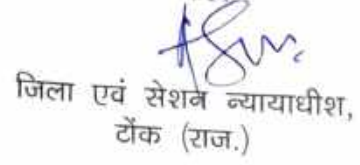 जिला एवं सेशन न्यायाधीश,
टोंक (राज.)